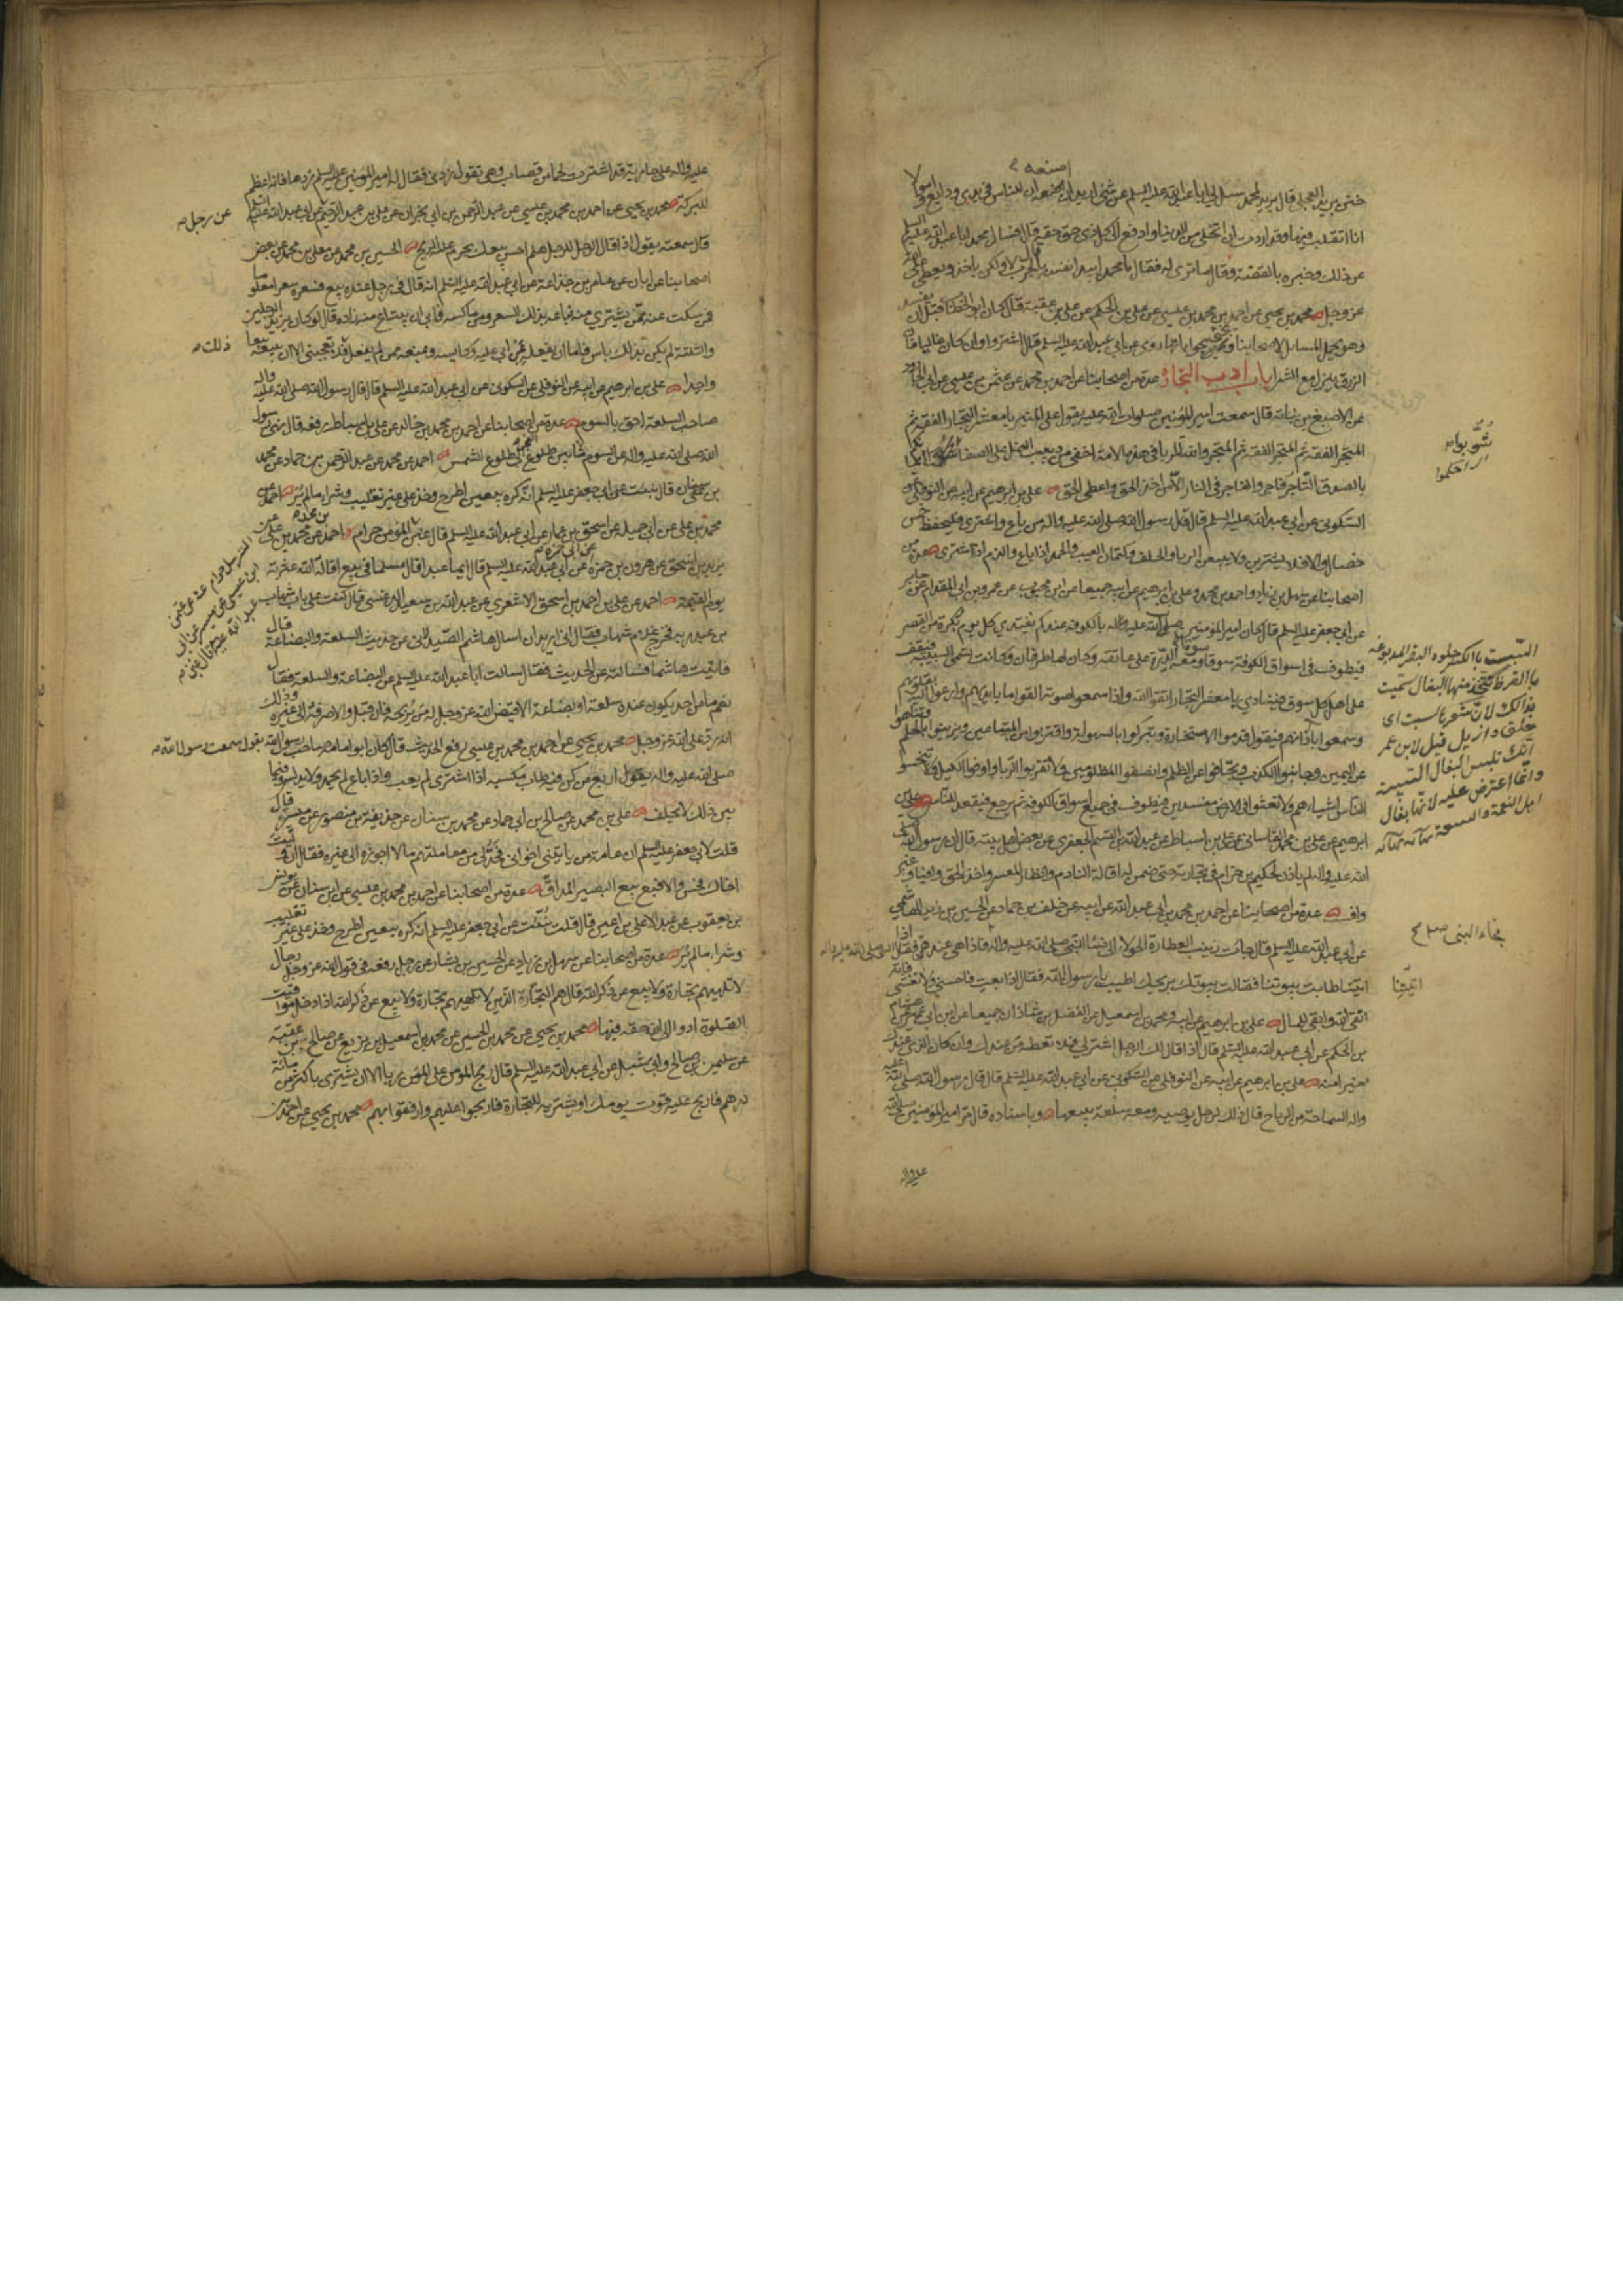 ختن بريد العجلي قال بريد لمحمد سل لي ابا عبد الله عليه السلم عن شئ اريد ان اصنعه ان للناس في يدي ودايع واموالا
انا اتقلب فيها وقد اردت ان اتخلى من الدنيا وادفع الى كل ذي حق حقه قال فسال محمد ابا عبد الله عليه السلم
عن ذلك وخبره بالقصة وقال ما ترى له فقال يا محمد ايبدا نفسه بالحرب لا ولكن ياخذ ويعطي على الله
عز وجل محمد بن يحيى عن احمد بن محمد بن عيسى عن علي بن الحكم عن علي بن عقبة قال كان ابو الخطاب قبل ان يفسد
وهو يحمل المسايل لاصحابنا ويجئ بجواباتها روى عن ابي عبد الله عليه السلم قال اشتروا وان كان غاليا فان
الرزق ينزل مع الشرا باب آداب التجارة عدة من اصحابنا عن احمد بن محمد عن عثمن بن عيسى عن ابي الجارود
عن الاصبغ بن نباتة قال سمعت امير المؤمنين صلوات الله عليه يقول على المنبر يا معشر التجار الفقه ثم
المتجر الفقه ثم المتجر الفقه ثم المتجر والله للربا في هذه الامة اخفى من دبيب النمل على الصفا شوبوا ايمانكم
بالصدق التاجر فاجر والفاجر في النار الا من اخذ الحق واعطى الحق علي بن ابرهيم عن ابيه عن النوفلي عن
السكوني عن ابي عبد الله عليه السلم قال قال رسول الله صلى الله عليه واله من باع واشترى فليحفظ خمس
خصال والا فلا يشترين ولا يبيعن الربا والحلف وكتمان العيب والحمد اذا باع والذم اذا اشترى عدة من
اصحابنا عن سهل بن زياد واحمد بن محمد وعلي بن ابرهيم عن ابيه جميعا عن ابن محبوب عن عمرو بن ابي المقدام عن جابر
عن ابي جعفر عليه السلم قال كان امير المؤمنين صلى الله عليه واله بالكوفة عندكم يغتدي كل يوم بكرة من القصر
فيطوف في اسواق الكوفة سوقا سوقا ومعه الدرة على عاتقه وكان لها طرفان وكانت تسمى السبيبة فيقف
على اهل كل سوق فينادي يا معشر التجار اتقوا الله واذا سمعوا صوته القوا ما بايديهم وارعوا اليه بقلوبهم
وسمعوا باذانهم فيقول قدموا الاستخارة وتبركوا بالسهولة واقتربوا من المبتاعين وتزينوا بالحلم وتناهوا
عن اليمين وجانبوا الكذب وتجافوا عن الظلم وانصفوا المظلومين ولا تقربوا الربا واوفوا الكيل ولا تبخسوا
الناس اشياءهم ولا تعثوا في الارض مفسدين فيطوف في جميع اسواق الكوفة ثم يرجع فيقعد للناس علي بن
ابرهيم عن علي بن محمد القاساني عن علي بن اسباط عن عبد الله بن القسم الجعفري عن بعض اهل بيته قال ان رسول الله صلى
الله عليه واله لم ياذن لحكيم بن حزام في تجارته حتى ضمن له اقالة النادم وانظار المعسر واخذ الحق وافيا وغير
واف عدة من اصحابنا عن احمد بن محمد بن ابي عبد الله عن ابيه عن خلف بن حماد عن الحسين بن زيد الهاشمي
عن ابي عبد الله عليه السلم قال جائت زينب العطارة الحولاء الى نساء النبي صلى الله عليه واله فاذا هي عندهم فقال النبي صلى الله عليه واله اذا
اتيتنا طابت بيوتنا فقالت بيوتك بريحك اطيب يا رسول الله فقال اذا بعت فاحسني ولا تغشي فانه
اتقى لله وابقى للمال علي بن ابرهيم عن ابيه ومحمد بن اسمعيل عن الفضل بن شاذان جميعا عن ابن ابي عمير عن هشام
بن الحكم عن ابي عبد الله عليه السلم قال اذا قال لك الرجل اشتر لي فلا تعطه من عندك وان كان الذي عندك
خيرا منه علي بن ابرهيم عن ابيه عن النوفلي عن السكوني عن ابي عبد الله عليه السلم قال قال رسول الله صلى الله عليه
واله السماحة من الرباح قال ذلك لرجل يوصيه ومعه سلعة يبيعها وباسناده قال مر امير المؤمنين صلى الله
عليه واله
شوبوا
السبت بالكسر جلود البقر المدبوغة
بالقرظ يتخذ منها النعال سميت
بذلك لان شعرها سبت اي
حلق وازيل قيل لابن عمر
انك تلبس النعال السبتية
وانما اعترض عليه لانها نعال
اهل النعمة والسعة نهاية
فجاء النبي صلع
اتيتنا
عليه واله على جارية قد اشترت لحما من قصاب وهي تقول زدني فقال له امير المؤمنين عليه السلم زدها فانه اعظم
للبركة محمد بن يحيى عن احمد بن محمد بن عيسى عن عبد الرحمن بن ابي نجران عن علي بن عبد الرحيم عن ابي عبد الله عليه السلم
عن رجل
قال سمعته يقول اذا قال الرجل للرجل هلم احسن بيعك يحرم عليه الربح الحسين بن محمد عن معلى بن محمد عن بعض
اصحابنا عن ابان عن عامر بن جذاعة عن ابي عبد الله عليه السلم انه قال في رجل عنده بيع فسعره سعرا معلوما
فمن سكت عنه ممن يشتري منه فباعه بذلك السعر ومن ماكسه فابى ان يبتاع منه زاده قال لو كان يزيد الرجلين
والثلثة لم يكن بذلك باس فاما ان يفعله بمن ابى عليه وكايسه ويمنعه ممن لم يفعل فلا يعجبني الا ان يبيعه بيعا
ذلك
واحدا علي بن ابرهيم عن ابيه عن النوفلي عن السكوني عن ابي عبد الله عليه السلم قال قال رسول الله صلى الله عليه واله
صاحب السلعة احق بالسوم عدة من اصحابنا عن احمد بن محمد بن خالد عن علي بن اسباط رفعه قال نهى رسول
الله صلى الله عليه واله عن السوم ما بين طلوع الفجر الى طلوع الشمس احمد عن محمد عن عبد الرحمن بن حماد عن محمد
بن سنان قال نبئت عن ابي جعفر عليه السلم انه كره بيعين اطرح وخذ على غير تقليب وشراء ما لم ير احمد عن
محمد بن علي عن ابي جميلة عن اسحق بن عمار عن ابي عبد الله عليه السلم قال غبن المؤمن حرام احمد عن محمد بن علي عن
يزيد بن اسحق عن هرون بن حمزة عن ابي عبد الله عليه السلم قال ايما عبد اقال مسلما في بيع اقاله الله عثرته
يوم القيمة احمد عن علي بن احمد بن اسحق الاشعري عن عبد الله بن سعيد الدغشي قال كنت على باب شهاب
بن عبد ربه فخرج غلام شهاب فقال اني اريد ان اسال هاشم الصيدلاني عن حديث السلعة والبضاعة قال
فاتيت هاشما فسالته عن الحديث فقال سالت ابا عبد الله عليه السلم عن البضاعة والسلعة فقال
نعم ما من احد يكون عنده سلعة او بضاعة الا قيض الله عز وجل له من يربحه فان قبل والا صرفه الى غيره وذلك
انه رد على الله عز وجل محمد بن يحيى عن احمد بن محمد بن عيسى رفع الحديث قال كان ابو امامة صاحب رسول الله يقول سمعت رسول الله
صلى الله عليه واله يقول اربع من كن فيه طاب مكسبه اذا اشترى لم يعب واذا باع لم يحمد ولا يدلس وفيما
بين ذلك لا يحلف علي بن محمد عن صالح بن ابي حماد عن محمد بن سنان عن حذيفة بن منصور عن ميسر قال
قلت لابي جعفر عليه السلم ان عامة من ياتيني اخواني فحد لي من معاملتهم ما لا اجوزه الى غيره فقال ان وليت
اخاك فحسن والا فبع بيع البصير المداق عدة من اصحابنا عن احمد بن محمد بن عيسى عن ابن سنان عن يونس
بن يعقوب عن عبد الاعلى بن اعين قال قلت نبئت عن ابي جعفر عليه السلم انه كره بيعين اطرح وخذ على غير تقليب
وشراء ما لم ير عدة من اصحابنا عن سهل بن زياد عن الحسين بن بشار عن رجل رفعه في قول الله عز وجل رجال
لا تلهيهم تجارة ولا بيع عن ذكر الله قال هم التجار الذين لا تلهيهم تجارة ولا بيع عن ذكر الله اذا دخل مواقيت
الصلوة ادوا الى الله حقه فيها محمد بن يحيى عن محمد بن الحسين عن محمد بن اسمعيل بن بزيع عن صالح بن عقبة
عن سليمن بن صالح وابي شبل عن ابي عبد الله عليه السلم قال ربح المؤمن على المؤمن ربا الا ان يشتري باكثر من مائة
درهم فاربح عليه قوت يومك او يشتريه للتجارة فاربحوا عليهم وارفقوا بهم محمد بن يحيى عن احمد بن